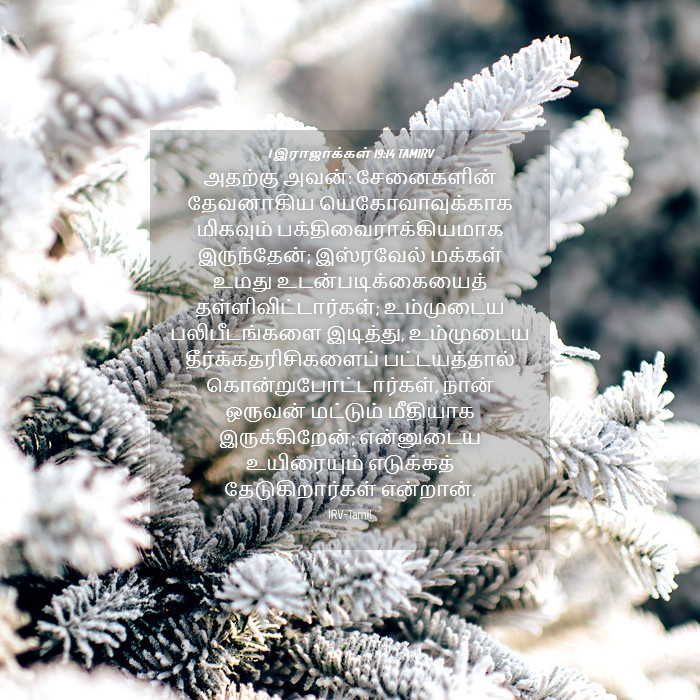 1 இராஜாக்கள் 19:14 TAMIRV
அதற்கு அவன்: சேனைகளின்
தேவனாகிய யெகோவாவுக்காக
மிகவும் பக்திவைராக்கியமாக
இருந்தேன்; இஸ்ரவேல் மக்கள்
உமது உடன்படிக்கையைத்
தள்ளிவிட்டார்கள்; உம்முடைய
பலிபீடங்களை இடித்து, உம்முடைய
தீர்க்கதரிசிகளைப் பட்டயத்தால்
கொன்றுபோட்டார்கள், நான்
ஒருவன் மட்டும் மீதியாக
இருக்கிறேன்; என்னுடைய
உயிரையும் எடுக்கத்
தேடுகிறார்கள் என்றான்.
IRV-Tamil